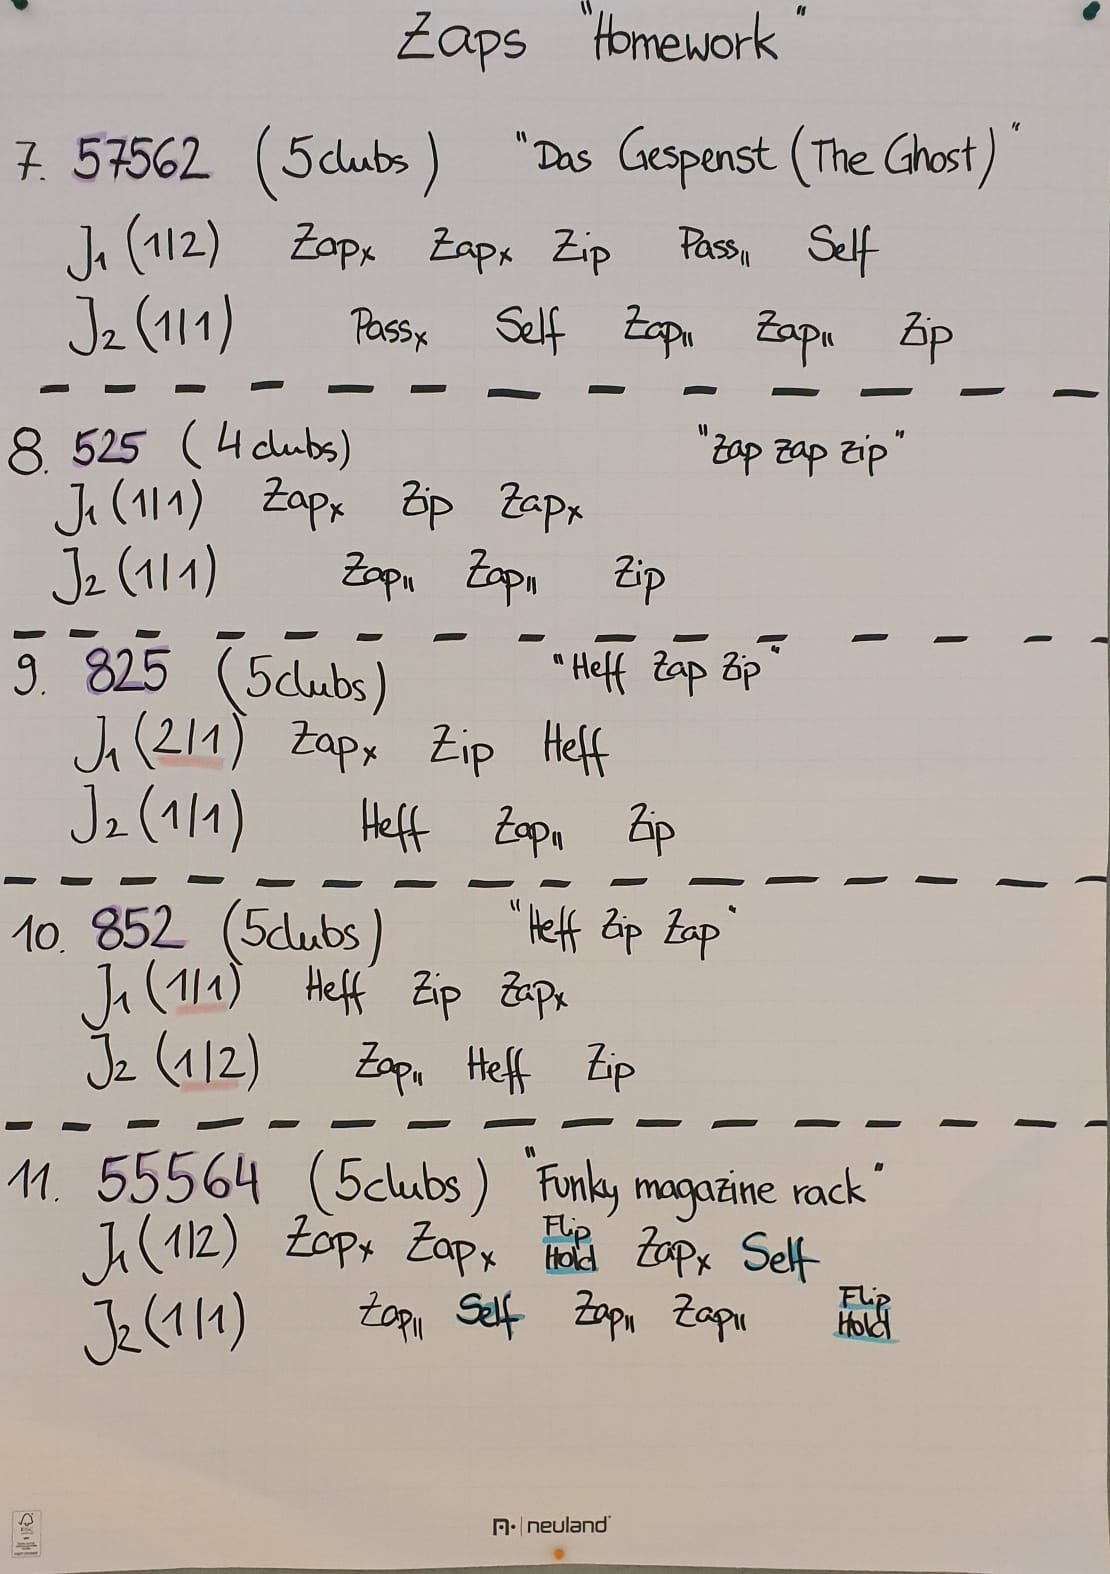 Zaps "Homework"
7. 57562 (5clubs) "Das Gespenst (The Ghost)"
J₁ (1|2) Zapx Zapx Zip Pass|| Self
J₂ (1|1) Passx Self Zap|| Zap|| Zip
8. 525 (4 clubs) "Zap zap zip"
J₁ (1|1) Zapx Zip Zapx
J₂ (1|1) Zap|| Zap|| Zip
9. 825 (5clubs) "Heff Zap Zip"
J₁ (2|1) Zapx Zip Heff
J₂ (1|1) Heff Zap|| Zip
10. 852 (5clubs) "Heff Zip Zap"
J₁ (1|1) Heff Zip Zapx
J₂ (1|2) Zap|| Heff Zip
11. 55564 (5clubs) "Funky magazine rack"
J₁ (1|2) Zapx Zapx Flip Hold Zapx Self
J₂ (1|1) Zap|| Self Zap|| Zap|| Flip Hold
neuland
FSC